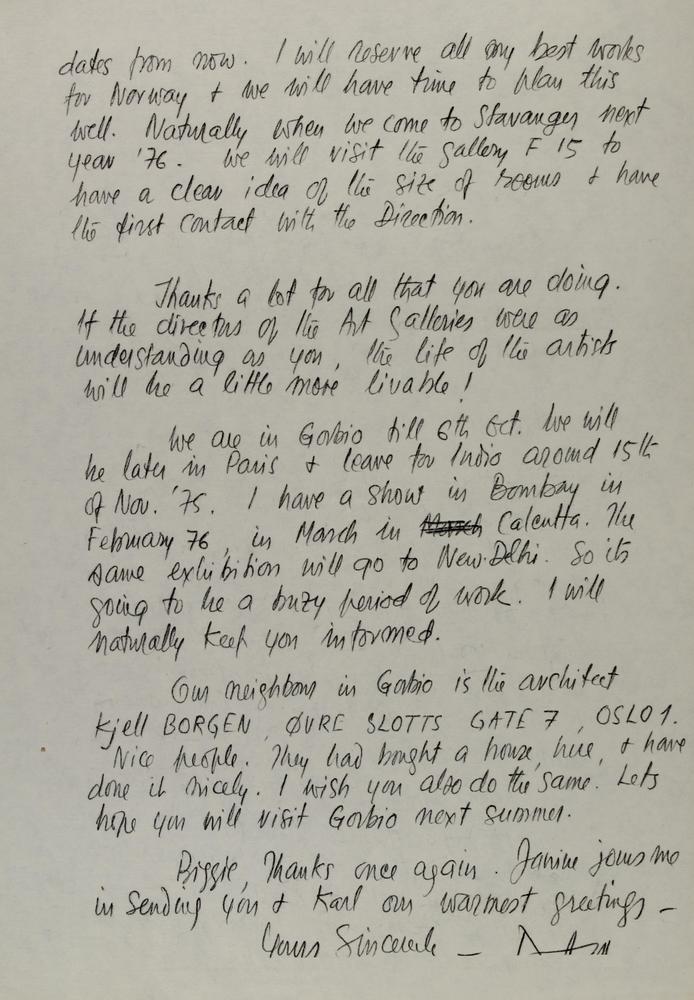 dates from now. I will reserve all my best works
for Norway & we will have time to plan this
well. Naturally when we come to Stavanger next
year '76. We will visit the gallery F 15 to
have a clear idea of the size of rooms & have
the first contact with the Direction.
Thanks a lot for all that you are doing.
If the directors of the Art Galleries were as
understanding as you, the life of the artists
will be a little more livable!
We are in Gorbio till 6th Oct. We will
be later in Paris & leave for India around 15th
of Nov. '75. I have a show in Bombay in
February 76, in March in March Calcutta. The
same exhibition will go to New-Delhi. So its
going to be a buzy period of work. I will
naturally keep you informed.
Our neighbour in Gorbio is the architect
Kjell BORGEN, ØVRE SLOTTS GATE 7, OSLO 1.
Nice people. They had bought a house, here, & have
done it nicely. I wish you also do the same. Lets
hope you will visit Gorbio next summer.
Biggie, Thanks once again. Janine joins me
in sending you & Karl our warmest greetings –
Yours Sincerely –